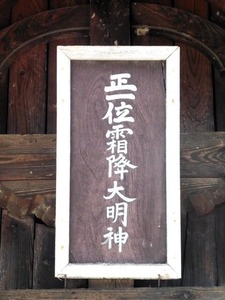 正一位霜降大明神